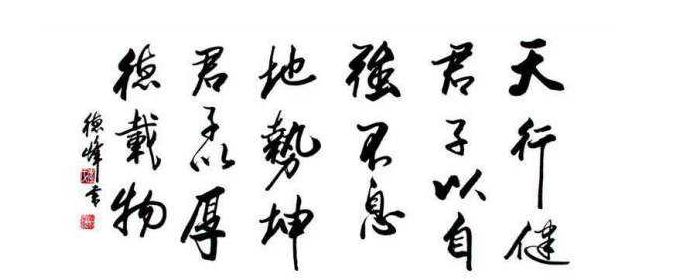 天行健
君子以自
強不息
地勢坤
君子以厚
德載物
德峰书